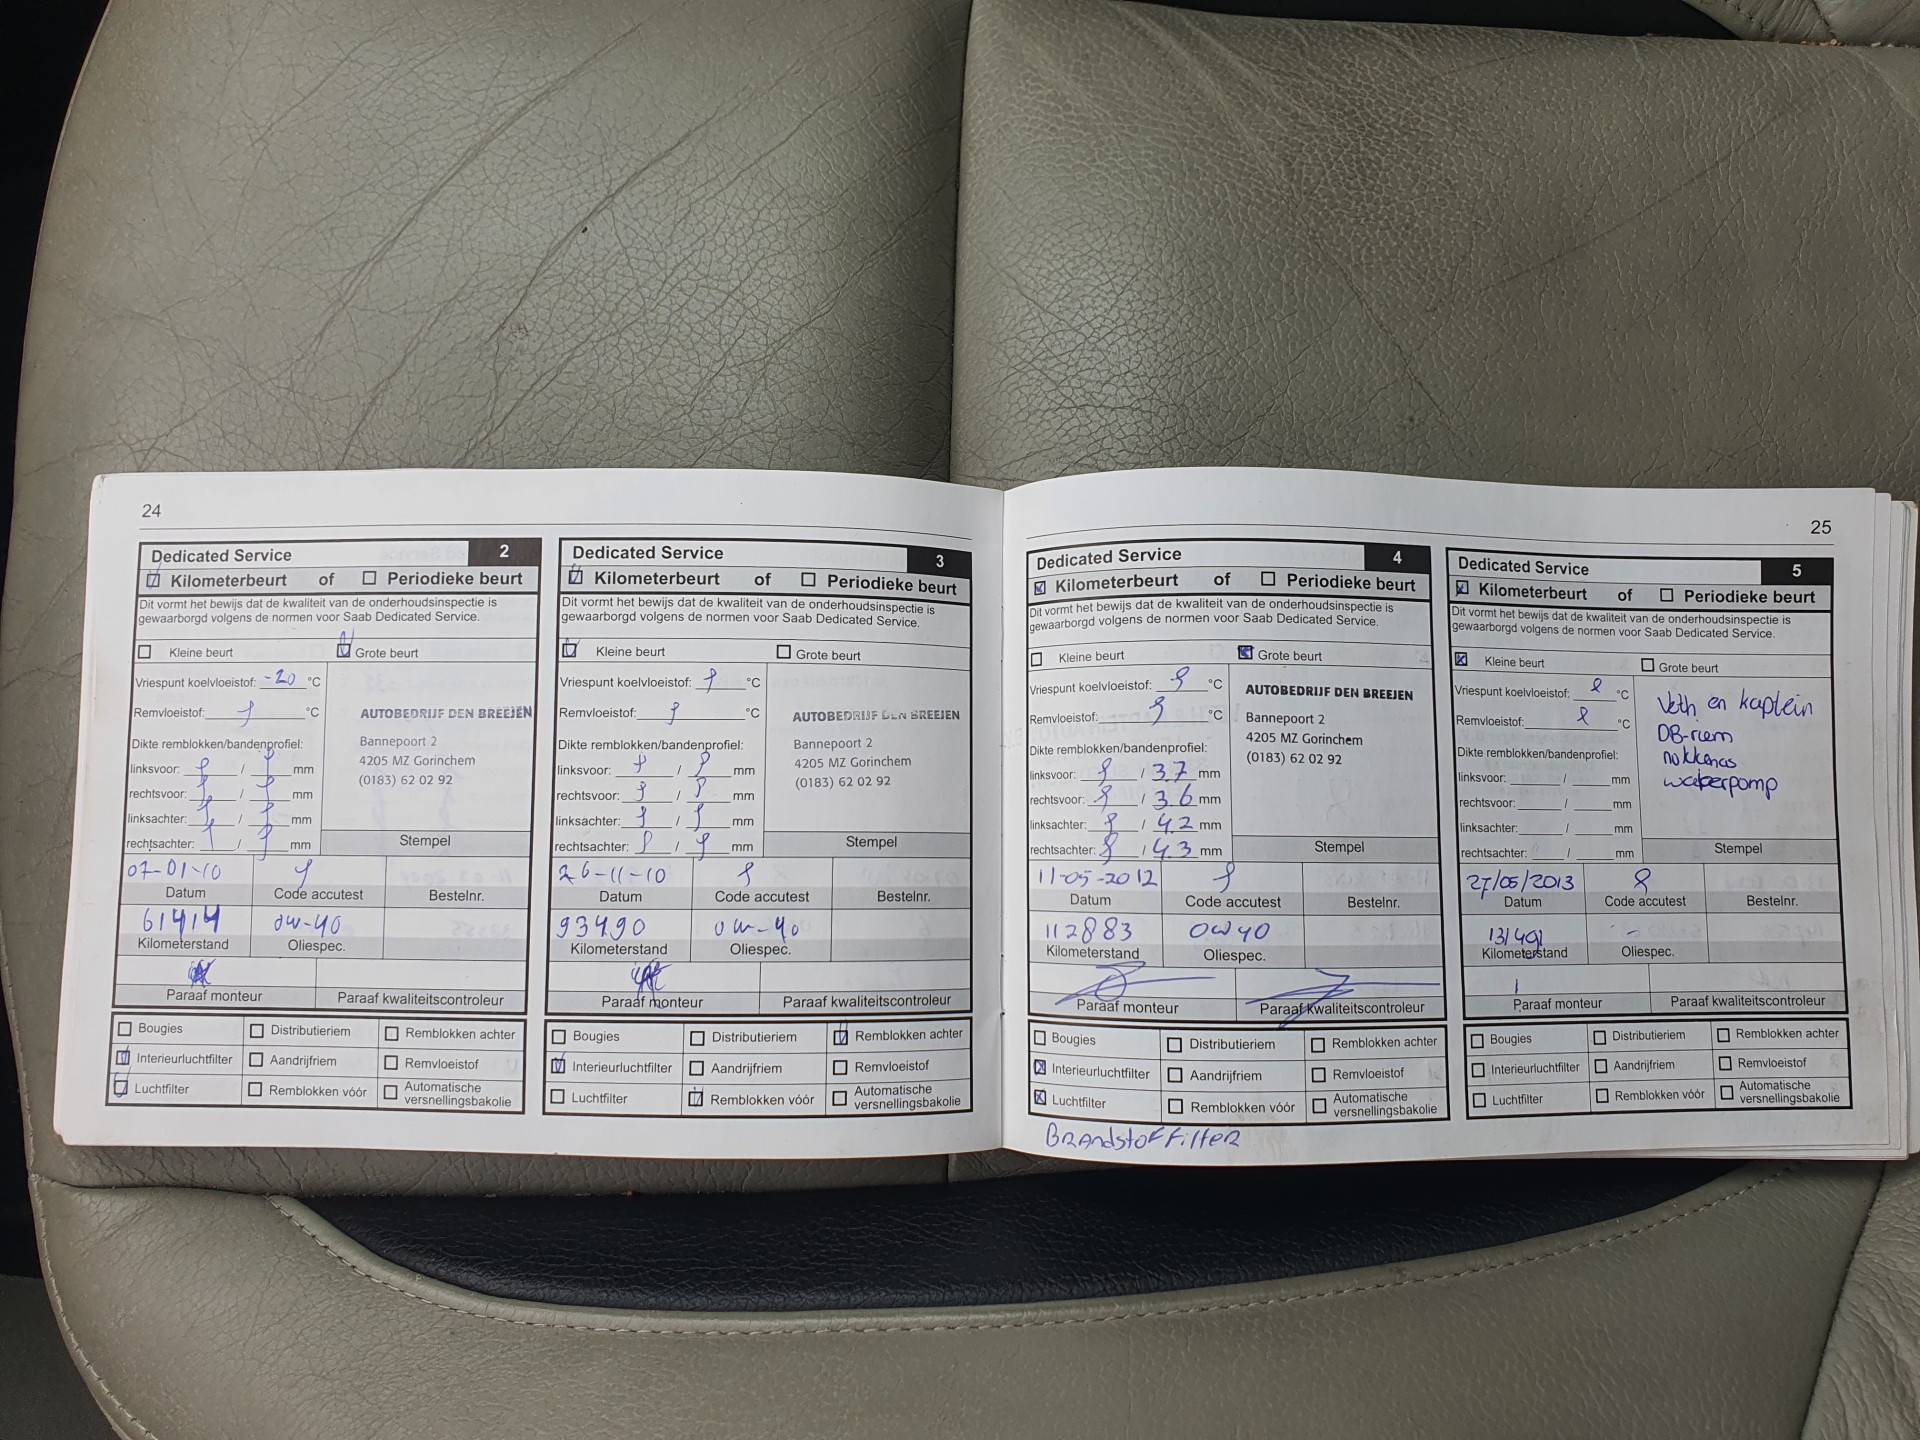 24
Dedicated Service 2
Kilometerbeurt of Periodieke beurt
Dit vormt het bewijs dat de kwaliteit van de onderhoudsinspectie is
gewaarborgd volgens de normen voor Saab Dedicated Service.
Kleine beurt Grote beurt
Vriespunt koelvloeistof: -20 °C
Remvloeistof: °C
AUTOBEDRIJF DEN BREEJEN
Bannepoort 2
4205 MZ Gorinchem
(0183) 62 02 92
Dikte remblokken/bandenprofiel:
linksvoor: / mm
rechtsvoor: / mm
linksachter: / mm
rechtsachter: / mm
Stempel
07-01-10
Datum Code accutest Bestelnr.
61414 0W-40
Kilometerstand Oliespec.
Paraaf monteur Paraaf kwaliteitscontroleur
Bougies Distributieriem Remblokken achter
Interieurluchtfilter Aandrijfriem Remvloeistof
Luchtfilter Remblokken vóór Automatische
versnellingsbakolie
Dedicated Service 3
Kilometerbeurt of Periodieke beurt
Dit vormt het bewijs dat de kwaliteit van de onderhoudsinspectie is
gewaarborgd volgens de normen voor Saab Dedicated Service.
Kleine beurt Grote beurt
Vriespunt koelvloeistof: °C
Remvloeistof: °C
AUTOBEDRIJF DEN BREEJEN
Bannepoort 2
4205 MZ Gorinchem
(0183) 62 02 92
Dikte remblokken/bandenprofiel:
linksvoor: / mm
rechtsvoor: / mm
linksachter: / mm
rechtsachter: / mm
Stempel
26-11-10
Datum Code accutest Bestelnr.
93490 0W-40
Kilometerstand Oliespec.
Paraaf monteur Paraaf kwaliteitscontroleur
Bougies Distributieriem Remblokken achter
Interieurluchtfilter Aandrijfriem Remvloeistof
Luchtfilter Remblokken vóór Automatische
versnellingsbakolie
25
Dedicated Service 4
Kilometerbeurt of Periodieke beurt
Dit vormt het bewijs dat de kwaliteit van de onderhoudsinspectie is
gewaarborgd volgens de normen voor Saab Dedicated Service.
Kleine beurt Grote beurt
Vriespunt koelvloeistof: °C
Remvloeistof: °C
AUTOBEDRIJF DEN BREEJEN
Bannepoort 2
4205 MZ Gorinchem
(0183) 62 02 92
Dikte remblokken/bandenprofiel:
linksvoor: / 3.7 mm
rechtsvoor: / 3.6 mm
linksachter: / 4.2 mm
rechtsachter: / 4.3 mm
Stempel
11-05-2012
Datum Code accutest Bestelnr.
112883 0W40
Kilometerstand Oliespec.
Paraaf monteur Paraaf kwaliteitscontroleur
Bougies Distributieriem Remblokken achter
Interieurluchtfilter Aandrijfriem Remvloeistof
Luchtfilter Remblokken vóór Automatische
versnellingsbakolie
BRANdstoffilteR
Dedicated Service 5
Kilometerbeurt of Periodieke beurt
Dit vormt het bewijs dat de kwaliteit van de onderhoudsinspectie is
gewaarborgd volgens de normen voor Saab Dedicated Service.
Kleine beurt Grote beurt
Vriespunt koelvloeistof: °C
Remvloeistof: °C
Veth en kaptein
DB-riem
nokkenas
waterpomp
Dikte remblokken/bandenprofiel:
linksvoor: / mm
rechtsvoor: / mm
linksachter: / mm
rechtsachter: / mm
Stempel
27/05/2013
Datum Code accutest Bestelnr.
131491 -
Kilometerstand Oliespec.
Paraaf monteur Paraaf kwaliteitscontroleur
Bougies Distributieriem Remblokken achter
Interieurluchtfilter Aandrijfriem Remvloeistof
Luchtfilter Remblokken vóór Automatische
versnellingsbakolie